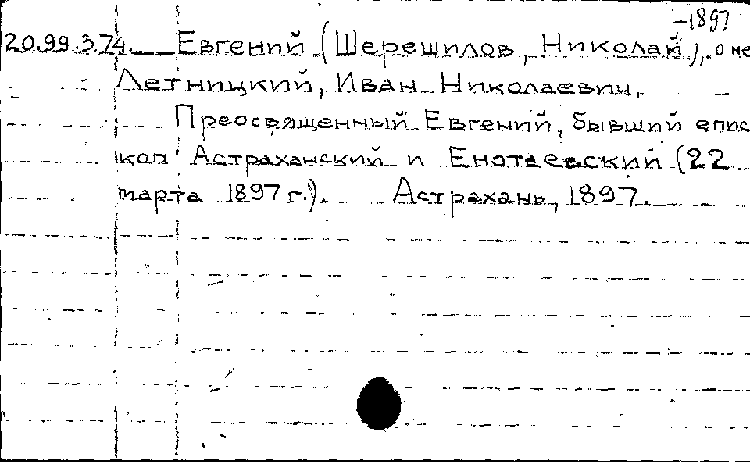 -1897
20.99.3.74. Евгений (Шерешилов, Николай), о не
Летницкий, Иван Николаевич.
Преосвященный Евгений, бывший епис
коп Астраханский и Енотаевский (22
марта 1897 г.). Астрахань, 1897.